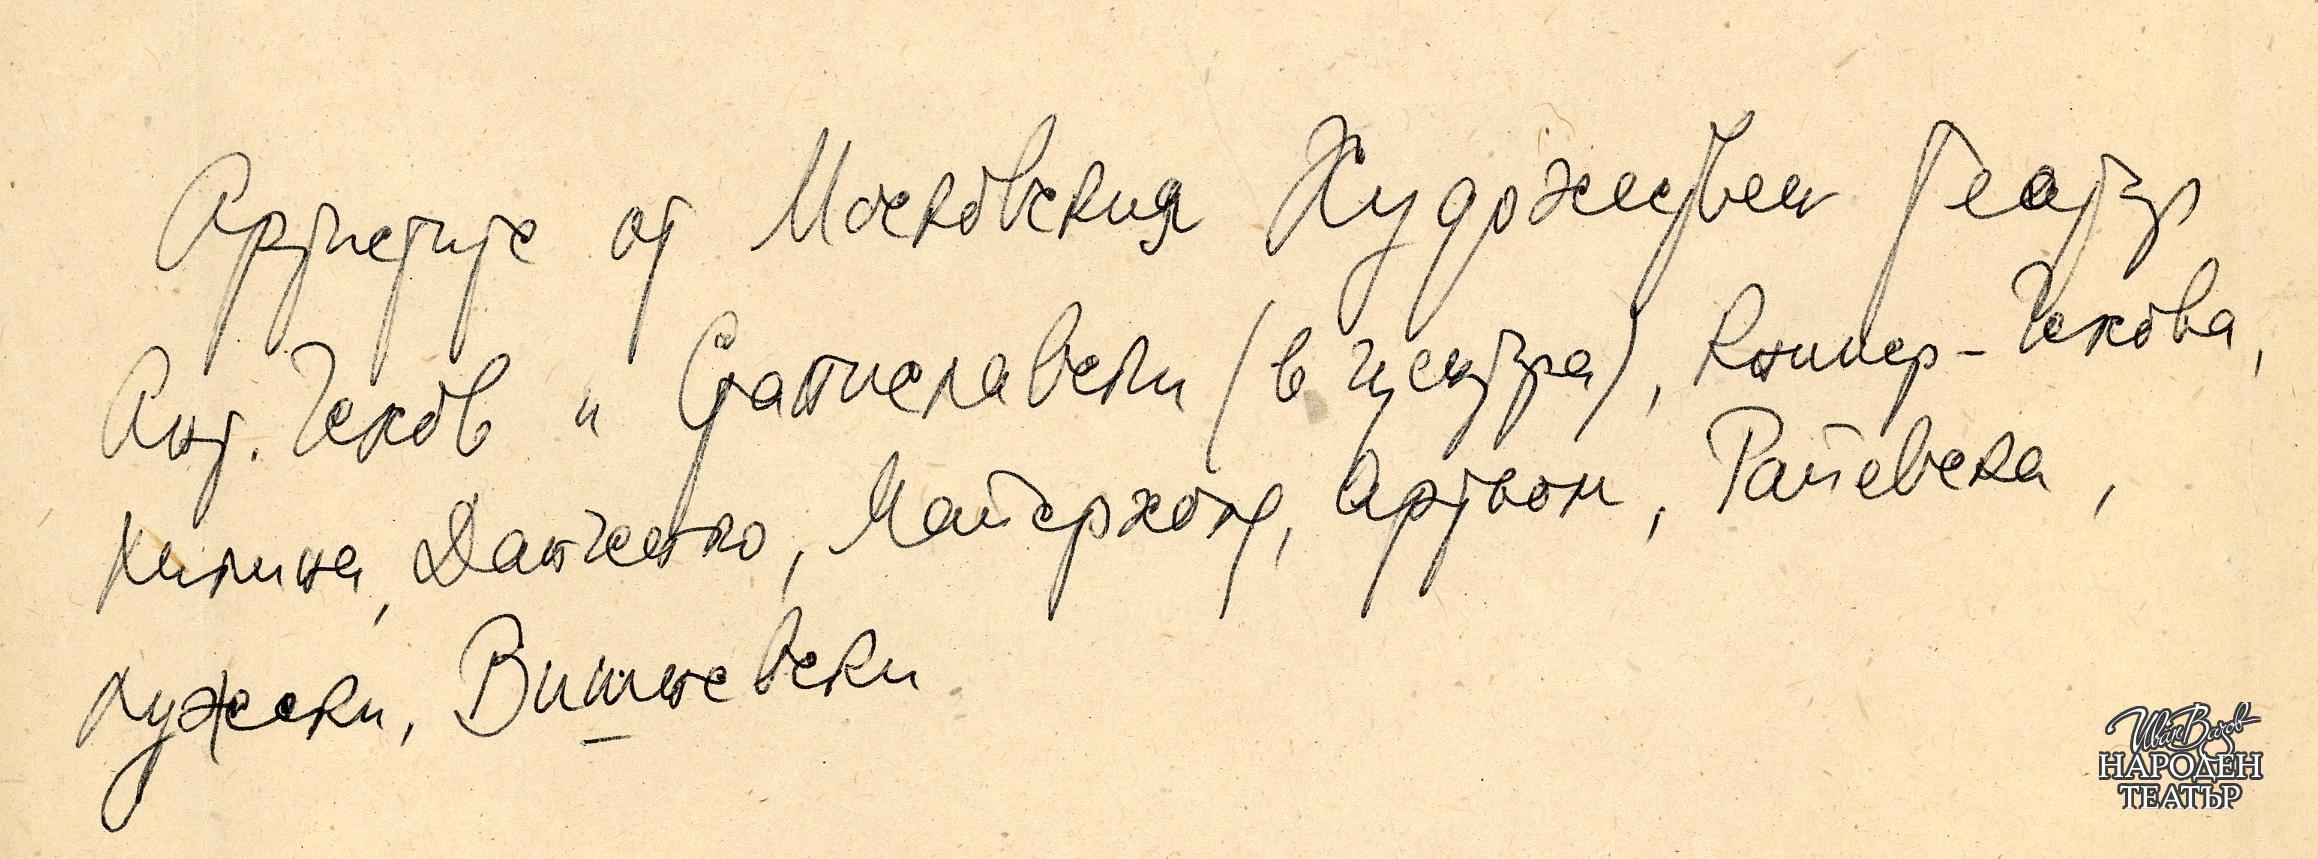 Артистите от Московския Художествен Театър
Ант. Чехов и Станиславски (в центъра), Книпер-Чехова,
Лилина, Данченко, Майерхолд, Артьом, Райевска,
Лужски, Вишневски
Иван Вазов
НАРОДЕН
ТЕАТЪР